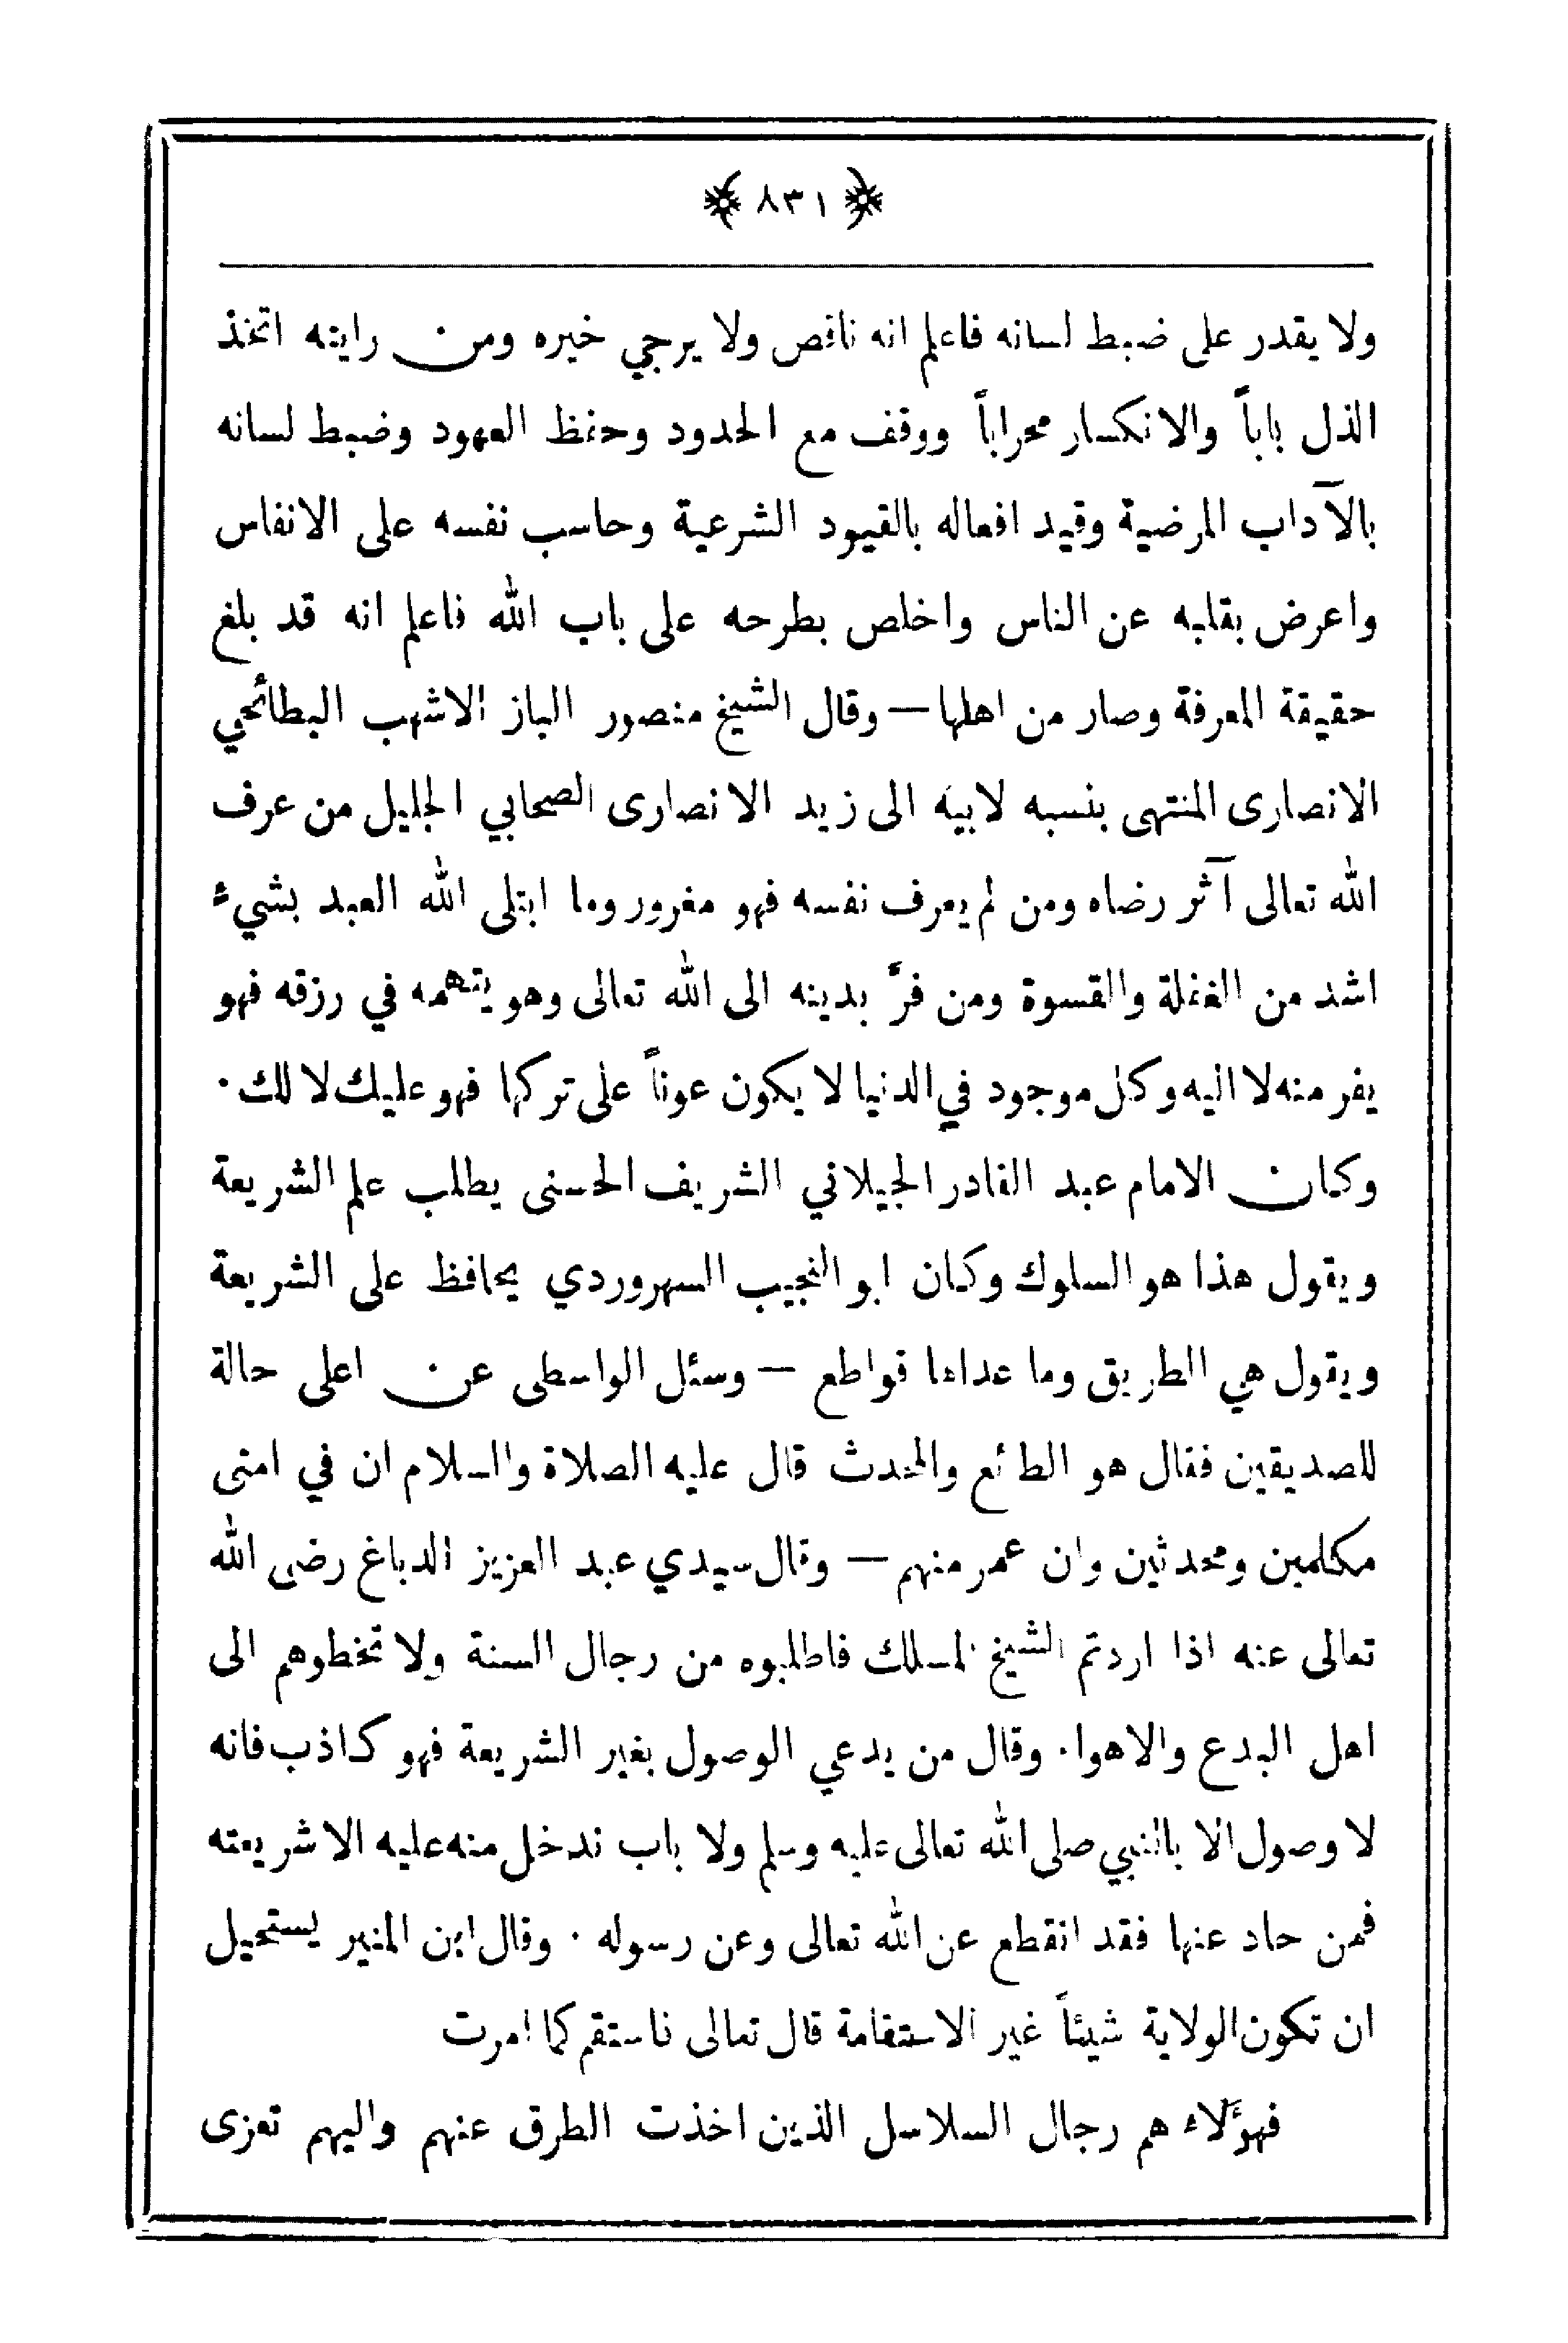 ﴿ ٨٣١ ﴾
ولا يقدر على ضبط لسانه فاعلم انه ناقص ولا يرجي خيره ومن رايته اتخذ
الذل باباً والانكسار محراباً ووقف مع الحدود وحفظ العهود وضبط لسانه
بالآداب المرضية وقيد افعاله بالقيود الشرعية وحاسب نفسه على الانفاس
واعرض بقلبه عن الناس واخلص بطرحه على باب الله فاعلم انه قد بلغ
حقيقة المعرفة وصار من اهلها — وقال الشيخ منصور الباز الاشهب البطائحي
الانصارى المنتهى بنسبه لابيه الى زيد الانصارى الصحابي الجليل من عرف
الله تعالى آثر رضاه ومن لم يعرف نفسه فهو مغرور وما ابتلى الله العبد بشيء
اشد من الغفلة والقسوة ومن فرَّ بدينه الى الله تعالى وهو يتهمه في رزقه فهو
يفر منه لا اليه وكل موجود في الدنيا لا يكون عوناً على تركها فهو عليك لا لك ·
وكان الامام عبد القادر الجيلاني الشريف الحسنى يطلب علم الشريعة
ويقول هذا هو السلوك وكان ابو النجيب السهروردي يحافظ على الشريعة
ويقول هي الطريق وما عداها قواطع — وسئل الواسطى عن اعلى حالة
للصديقين فقال هو الطائع والمحدث قال عليه الصلاة والسلام ان في امتى
مكلمين ومحدثين وان عمر منهم — وقال سيدي عبد العزيز الدباغ رضى الله
تعالى عنه اذا اردتم الشيخ المسلك فاطلبوه من رجال السنة ولا تخطوهم الى
اهل البدع والاهوا· وقال من يدعي الوصول بغير الشريعة فهو كاذب فانه
لا وصول الا بالنبي صلى الله تعالى عليه وسلم ولا باب ندخل منه عليه الا شريعته
فمن حاد عنها فقد انقطع عن الله تعالى وعن رسوله · وقال ابن المنير يستحيل
ان تكون الولاية شيئاً غير الاستقامة قال تعالى فاستقم كما امرت
فهؤلاء هم رجال السلاسل الذين اخذت الطرق عنهم واليهم تعزى